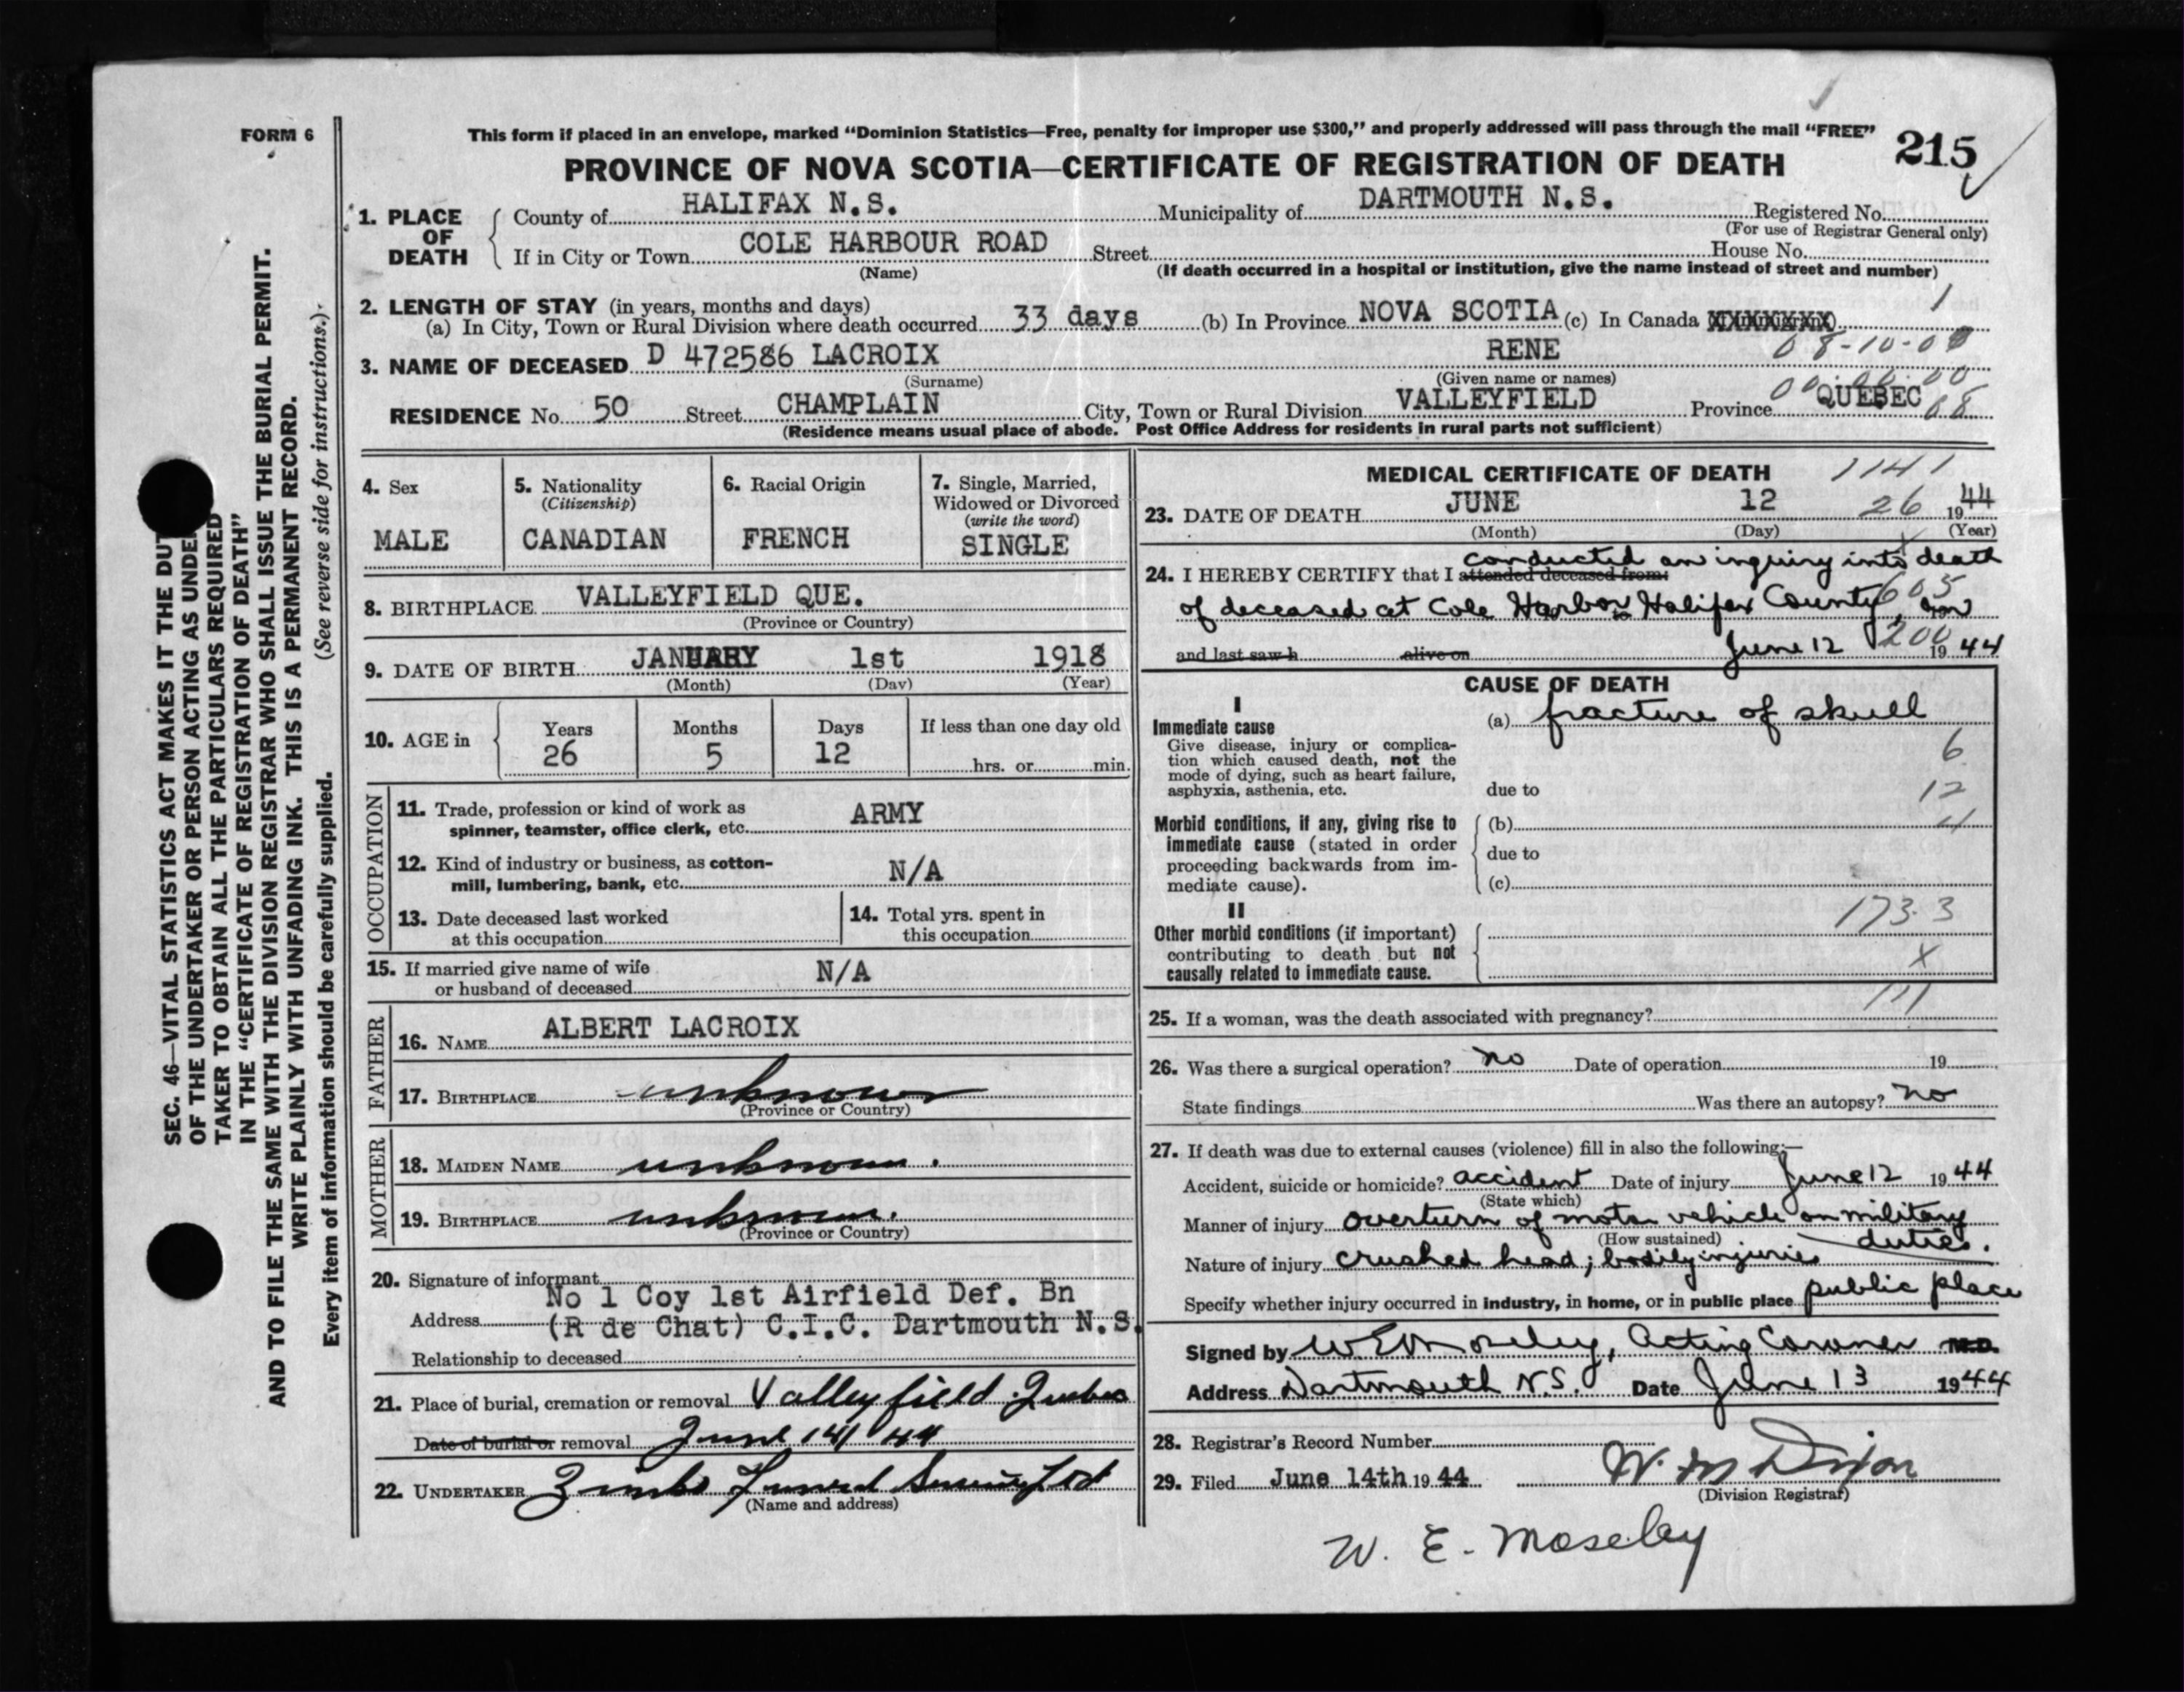 FORM 6
This form if placed in an envelope, marked "Dominion Statistics—Free, penalty for improper use $300," and properly addressed will pass through the mail "FREE"
215
PROVINCE OF NOVA SCOTIA—CERTIFICATE OF REGISTRATION OF DEATH
1. PLACE OF DEATH
County of HALIFAX N.S. Municipality of DARTMOUTH N.S. Registered No.
(For use of Registrar General only)
If in City or Town COLE HARBOUR ROAD Street House No.
(Name) (If death occurred in a hospital or institution, give the name instead of street and number)
2. LENGTH OF STAY (in years, months and days)
(a) In City, Town or Rural Division where death occurred 33 days (b) In Province NOVA SCOTIA (c) In Canada XXXXXXXX 1
08-10-00
3. NAME OF DECEASED D 472586 LACROIX RENE
(Surname) (Given name or names)
00 00 00
RESIDENCE No. 50 Street CHAMPLAIN City, Town or Rural Division VALLEYFIELD Province QUEBEC 08
(Residence means usual place of abode. Post Office Address for residents in rural parts not sufficient)
4. Sex
MALE
5. Nationality
(Citizenship)
CANADIAN
6. Racial Origin
FRENCH
7. Single, Married,
Widowed or Divorced
(write the word)
SINGLE
8. BIRTHPLACE VALLEYFIELD QUE.
(Province or Country)
9. DATE OF BIRTH JANUARY 1st 1918
(Month) (Day) (Year)
10. AGE in
Years Months Days If less than one day old
26 5 12 hrs. or min.
OCCUPATION
11. Trade, profession or kind of work as
spinner, teamster, office clerk, etc. ARMY
12. Kind of industry or business, as cotton-
mill, lumbering, bank, etc. N/A
13. Date deceased last worked
at this occupation
14. Total yrs. spent in
this occupation
15. If married give name of wife
or husband of deceased N/A
FATHER
16. NAME ALBERT LACROIX
17. BIRTHPLACE unknown
(Province or Country)
MOTHER
18. MAIDEN NAME unknown.
19. BIRTHPLACE unknown.
(Province or Country)
20. Signature of informant
No 1 Coy 1st Airfield Def. Bn
Address (R de Chat) C.I.C. Dartmouth N.S.
Relationship to deceased
21. Place of burial, cremation or removal Valleyfield Quebec
Date of burial or removal June 14/44
22. UNDERTAKER Funeral Service Ltd
(Name and address)
MEDICAL CERTIFICATE OF DEATH 1141
23. DATE OF DEATH JUNE 12 26 1944
(Month) (Day) (Year)
conducted an inquiry into death
24. I HEREBY CERTIFY that I attended deceased from:
of deceased at Cole Harbor Halifax County, on 605
and last saw h alive on June 12 200 1944
CAUSE OF DEATH
I
Immediate cause (a) fracture of skull
Give disease, injury or complica-
tion which caused death, not the
mode of dying, such as heart failure,
asphyxia, asthenia, etc. due to
6
12
Morbid conditions, if any, giving rise to
immediate cause (stated in order
proceeding backwards from im-
mediate cause).
(b)
due to
(c)
II
173.3
Other morbid conditions (if important)
contributing to death but not
causally related to immediate cause. X
25. If a woman, was the death associated with pregnancy?
26. Was there a surgical operation? no Date of operation 19
State findings Was there an autopsy? no
27. If death was due to external causes (violence) fill in also the following:—
Accident, suicide or homicide? accident Date of injury June 12 1944
(State which)
Manner of injury overturn of motor vehicle on military
(How sustained) duties.
Nature of injury crushed head; bodily injuries
Specify whether injury occurred in industry, in home, or in public place public place
Signed by W E Moseley, Acting Coroner M.D.
Address Dartmouth N.S. Date June 13 1944
28. Registrar's Record Number
29. Filed June 14th 1944 W. M Dixon
(Division Registrar)
W. E. Moseley
SEC. 46—VITAL STATISTICS ACT MAKES IT THE DUT
OF THE UNDERTAKER OR PERSON ACTING AS UNDE
TAKER TO OBTAIN ALL THE PARTICULARS REQUIRED
IN THE "CERTIFICATE OF REGISTRATION OF DEATH"
AND TO FILE THE SAME WITH THE DIVISION REGISTRAR WHO SHALL ISSUE THE BURIAL PERMIT.
WRITE PLAINLY WITH UNFADING INK. THIS IS A PERMANENT RECORD.
Every item of information should be carefully supplied. (See reverse side for instructions.)